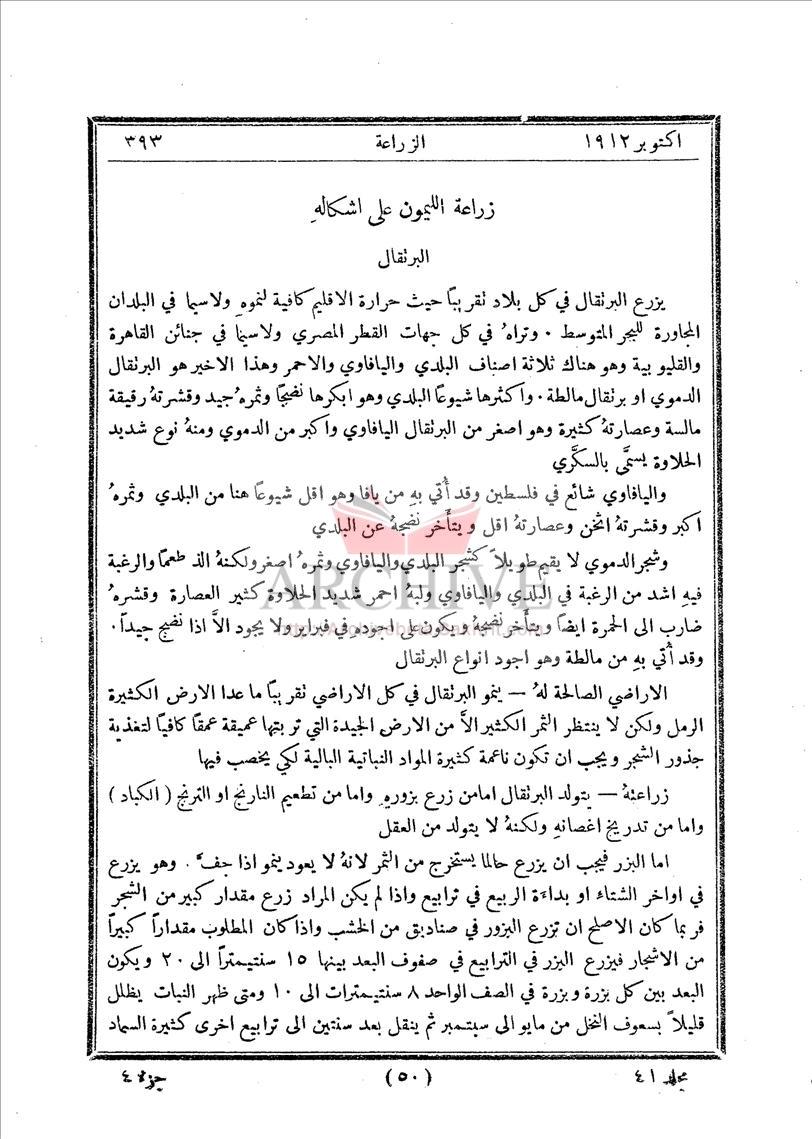 اكتوبر ١٩١٢ الزراعة ٣٩٣
زراعة الليمون على اشكالهِ
البرتقال
يزرع البرتقال في كل بلاد تقريبًا حيث حرارة الاقليم كافية لنموهِ ولاسيما في البلدان
المجاورة للبحر المتوسط ٠ وتراهُ في كل جهات القطر المصري ولاسيما في جنائن القاهرة
والقليوبية وهو هناك ثلاثة اصناف البلدي واليافاوي والاحمر وهذا الاخير هو البرتقال
الدموي او برتقال مالطة ٠ واكثرها شيوعًا البلدي وهو ابكرها نضجًا وثمرهُ جيد وقشرتهُ رقيقة
مالسة وعصارتهُ كثيرة وهو اصغر من البرتقال اليافاوي واكبر من الدموي ومنهُ نوع شديد
الحلاوة يسمَّى بالسكَّري
واليافاوي شائع في فلسطين وقد أُتي بهِ من يافا وهو اقل شيوعًا هنا من البلدي وثمرهُ
اكبر وقشرتهُ اثخن وعصارتهُ اقل ويتأَخر نضجهُ عن البلدي
وشجر الدموي لا يقيم طويلاً كشجر البلدي واليافاوي وثمرهُ اصغر ولكنهُ الذ طعمًا والرغبة
فيهِ اشد من الرغبة في البلدي واليافاوي ولبهُ احمر شديد الحلاوة كثير العصارة وقشرهُ
ضارب الى الحمرة ايضًا ويتأَخر نضجهُ ويكون على اجودهِ في فبراير ولا يجود الاَّ اذا نضج جيداً ٠
وقد أُتي بهِ من مالطة وهو اجود انواع البرتقال
الاراضي الصالحة لهُ — ينمو البرتقال في كل الاراضي تقريبًا ما عدا الارض الكثيرة
الرمل ولكن لا ينتظر الثمر الكثير الاَّ من الارض الجيدة التي تربتها عميقة عمقًا كافيًا لتغذية
جذور الشجر ويجب ان تكون ناعمة كثيرة المواد النباتية البالية لكي يخصب فيها
زراعتهُ — يتولد البرتقال امامن زرع بزورهِ واما من تطعيم النارنج او الترنج ( الكباد )
واما من تدريخ اغصانهِ ولكنهُ لا يتولد من العقل
اما البزر فيجب ان يزرع حالما يستخرج من الثمر لانهُ لا يعود ينمو اذا جفَّ ٠ وهو يزرع
في اواخر الشتاء او بداءَة الربيع في ترابيع واذا لم يكن المراد زرع مقدار كبير من الشجر
فربما كان الاصلح ان تزرع البزور في صناديق من الخشب واذا كان المطلوب مقداراً كبيراً
من الاشجار فيزرع البزر في الترابيع في صفوف البعد بينها ١٥ سنتيمتراً الى ٢٠ ويكون
البعد بين كل بزرة وبزرة في الصف الواحد ٨ سنتيمترات الى ١٠ ومتى ظهر النبات يظلل
قليلاً بسعوف النخل من مايو الى سبتمبر ثم ينقل بعد سنتين الى ترابيع اخرى كثيرة السماد
مجلد ٤١ (٥٠) جزء ٤
ARCHIVE